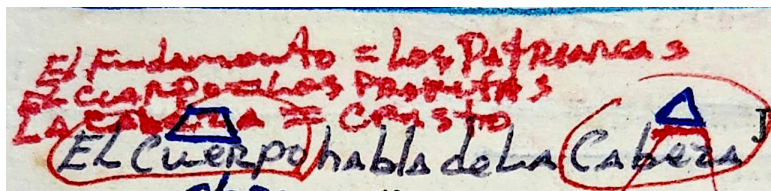 El Fundamento = Los Patriarcas
El cuerpo = Los Profetas
La Cabeza = Cristo
EL Cuerpo habla de La Cabeza